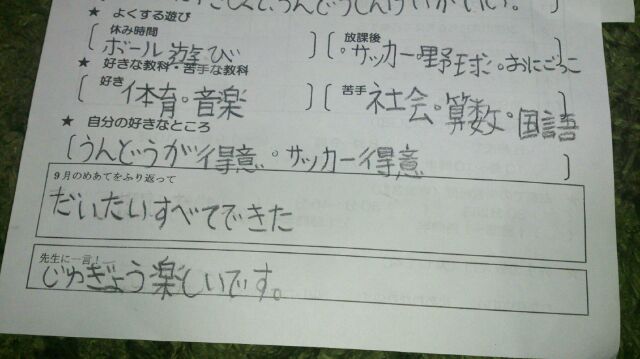 ★ よくする遊び
休み時間 放課後
[ボール遊び] [。サッカー。野球。おにごっこ]
★ 好きな教科・苦手な教科
好き 苦手
[体育。音楽] [社会。算数。国語]
★ 自分の好きなところ
[うんどうが得意。サッカー得意]
9月のめあてをふり返って
だいたいすべてできた
先生に一言!
じゅぎょう楽しいです。